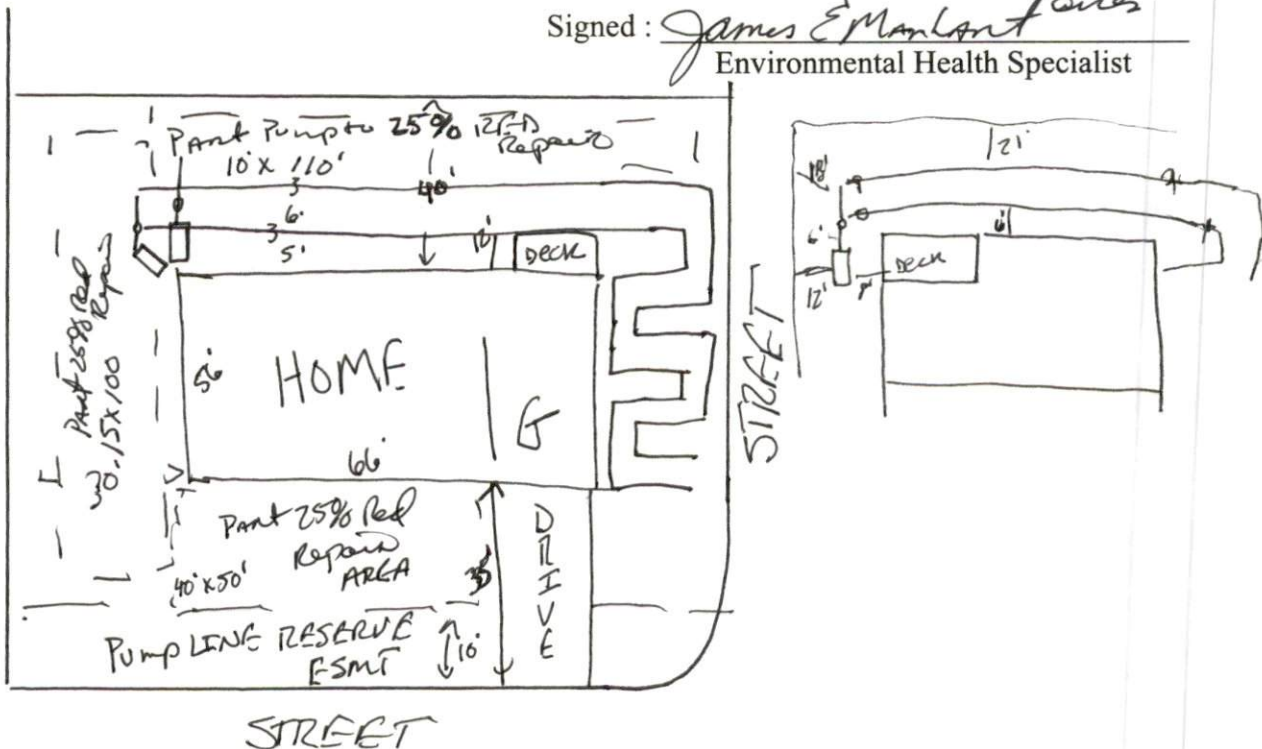 Signed : James E Manhart
Environmental Health Specialist
Part Pump to 25% RED
Repair
10' X 110'
40'
3
6'
3
5'
12'
DECK
Part 25% Red
Repair
30.15X100
56'
HOME
G
66'
Part 25% Red
Repair
AREA
40'x50'
35'
DRIVE
Pump LINE RESERVE
ESMT
10'
STREET
STREET
121'
18'
6'
6'
DECK
12'
9'